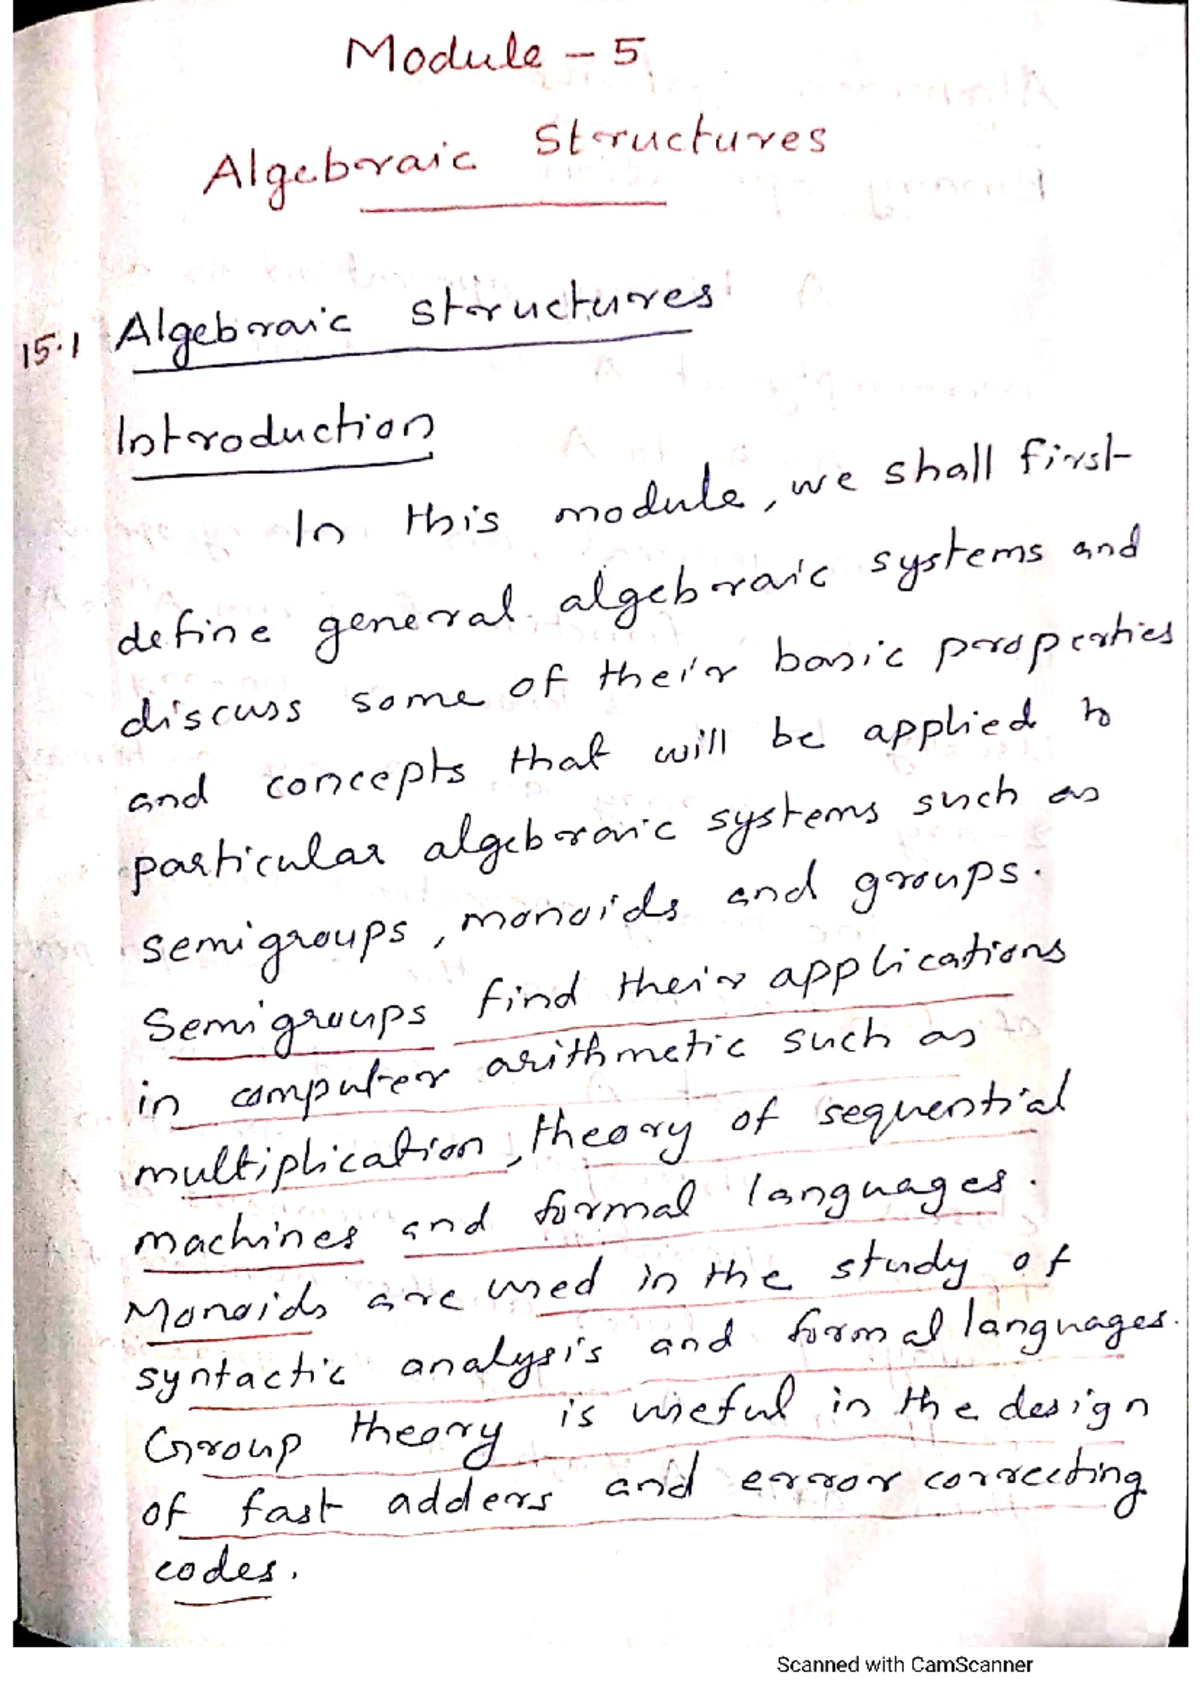 Module - 5
Algebraic Structures
15.1 Algebraic structures
Introduction
In this module, we shall first
define general algebraic systems and
discuss some of their basic properties
and concepts that will be applied to
particular algebraic systems such as
semigroups, monoids and groups.
Semigroups find their applications
in computer arithmetic such as
multiplication, theory of sequential
machines and formal languages.
Monoids are used in the study of
syntactic analysis and formal languages.
Group theory is useful in the design
of fast adders and error correcting
codes.
Scanned with CamScanner